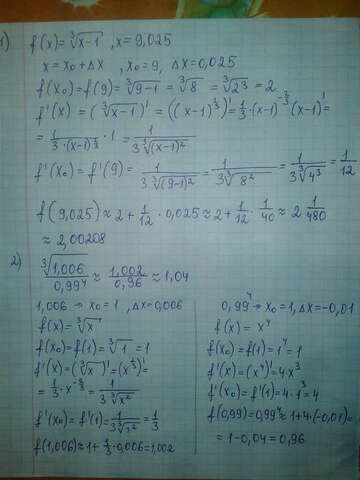 1) f(x) = ∛(x-1) , x = 9,025
x = x₀ + Δx , x₀ = 9, Δx = 0,025
f(x₀) = f(9) = ∛(9-1) = ∛8 = ∛(2³) = 2
f'(x) = (∛(x-1))' = ((x-1)^(1/3))' = 1/3 · (x-1)^(-2/3) (x-1)' =
= 1/(3·(x-1)^(2/3)) · 1 = 1/(3∛((x-1)²))
f'(x₀) = f'(9) = 1/(3∛((9-1)²)) = 1/(3∛(8²)) = 1/(3∛(4³)) = 1/12
f(9,025) ≈ 2 + 1/12 · 0,025 ≈ 2 + 1/12 · 1/40 ≈ 2 1/480
≈ 2,00208
2) ∛1,006/0,99⁴ ≈ 1,002/0,96 ≈ 1,04
1,006 → x₀ = 1 , Δx = 0,006
f(x) = ∛x
f(x₀) = f(1) = ∛1 = 1
f'(x) = (∛x)' = (x^(1/3))' =
= 1/3 · x^(-2/3) = 1/(3∛(x²))
f'(x₀) = f'(1) = 1/(3∛(1²)) = 1/3
f(1,006) ≈ 1 + 1/3 · 0,006 = 1,002
0,99⁴ → x₀ = 1, Δx = -0,01
f(x) = x⁴
f(x₀) = f(1) = 1⁴ = 1
f'(x) = (x⁴)' = 4x³
f'(x₀) = f'(1) = 4·1³ = 4
f(0,99) = 0,99⁴ ≈ 1 + 4·(-0,01) =
= 1 - 0,04 = 0,96